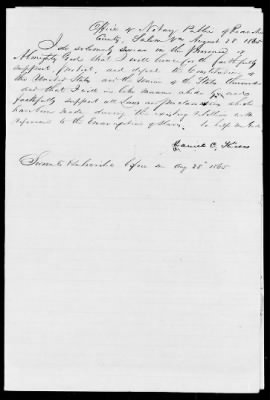 Office of Notary Public of Roanoke
County, Salem Va August 28 1865
I do solemnly swear in the presence of
Almighty God that I will henceforth faithfully
support protect, and defend the Constitution of
the United States and the Union of the States thereunder
and that I will in like manner abide by and
faithfully support all Laws and proclamations which
have been made during the existing rebellion with
reference to the Emancipation of slaves. So help me God
Samuel C.
Sworn to & subscribed before me Aug 28th 1865